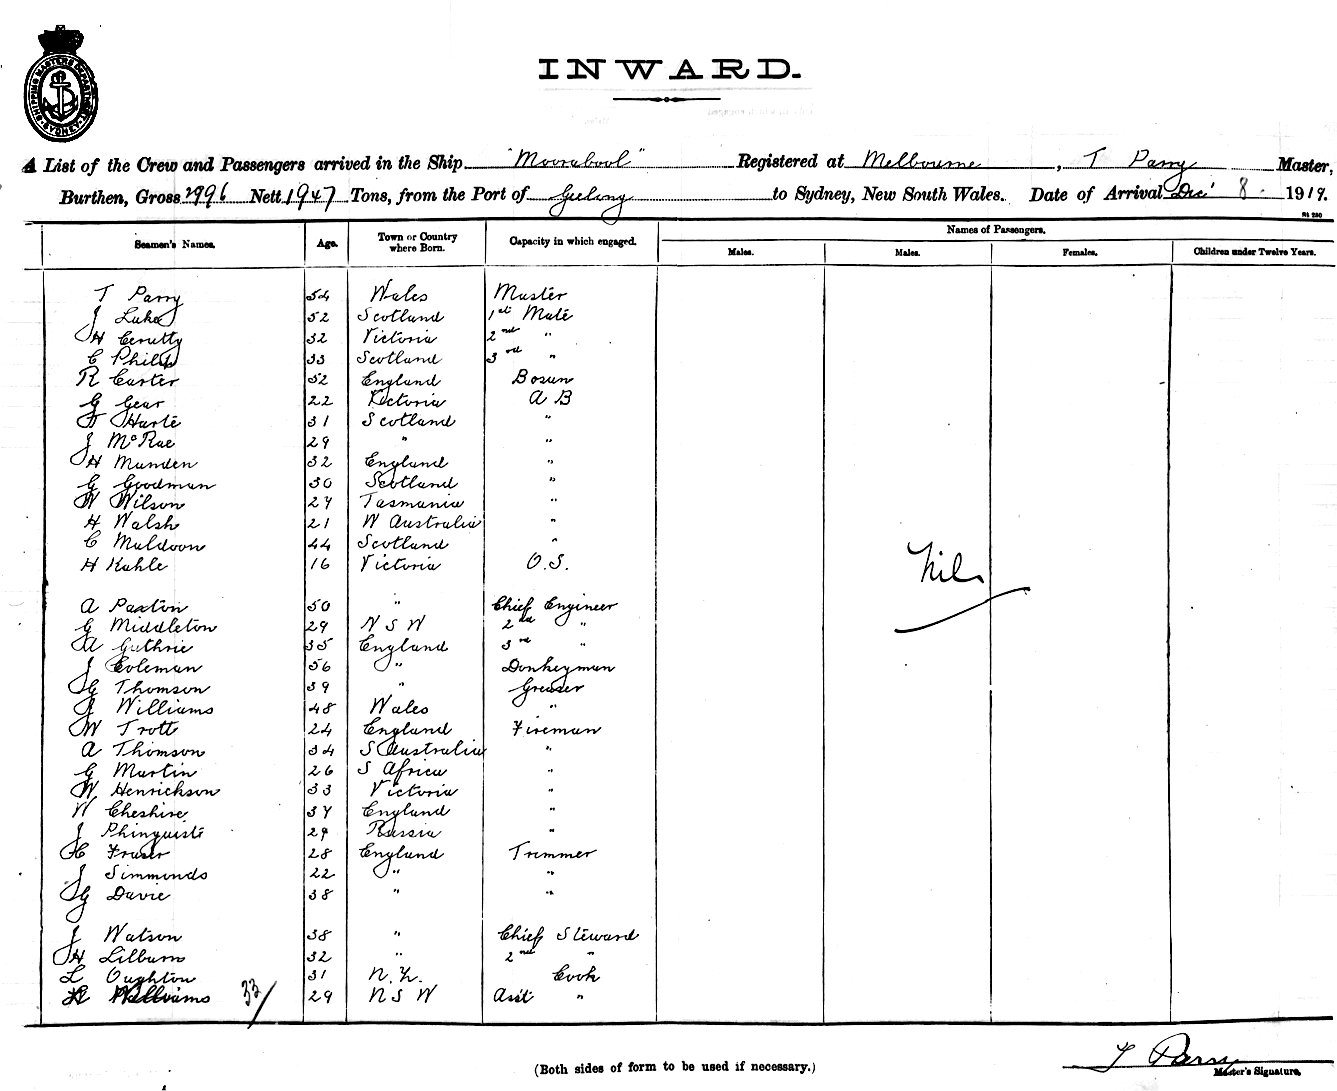 SHIPPING MASTERS DEPARTMENT SYDNEY
INWARD.
A List of the Crew and Passengers arrived in the Ship "Moorabool" Registered at Melbourne, T Parry Master,
Burthen, Gross 2996 Nett 1947 Tons, from the Port of Geelong to Sydney, New South Wales. Date of Arrival Dec' 8. 1919.
Seamen's Names. Age. Town or Country where Born. Capacity in which engaged. Names of Passengers.
Males. Males. Females. Children under Twelve Years.
T Parry 54 Wales Master
J Luke 52 Scotland 1st Mate
H Cerutty 32 Victoria 2nd "
C Philip 33 Scotland 3rd "
R Carter 52 England Bosun
G Gear 22 Victoria A B
T Harte 31 Scotland "
J McRae 29 " "
H Munden 32 England "
G Goodman 30 Scotland "
W Wilson 27 Tasmania "
H Walsh 21 W Australia "
C Muldoon 44 Scotland "
H Kahle 16 Victoria O.S.
Nil
A Paxton 50 " Chief Engineer
G Middleton 29 N S W 2nd "
A Guthrie 35 England 3rd "
J Coleman 56 " Donkeyman
G Thomson 39 " Greaser
R Williams 48 Wales "
W Trott 24 England Fireman
A Thomson 34 S Australia "
G Martin 26 S Africa "
W Henrickson 33 Victoria "
W Cheshire 37 England "
J Phinquiste 29 Russia "
C Fraser 28 England Trimmer
J Simmonds 22 " "
G Davie 38 " "
J Watson 38 " Chief Steward
H Lilburn 32 " 2nd "
L Oughton 31 N.Z. Cook
Williams 33/ 29 N S W Asst "
T Parry
(Both sides of form to be used if necessary.) Master's Signature.